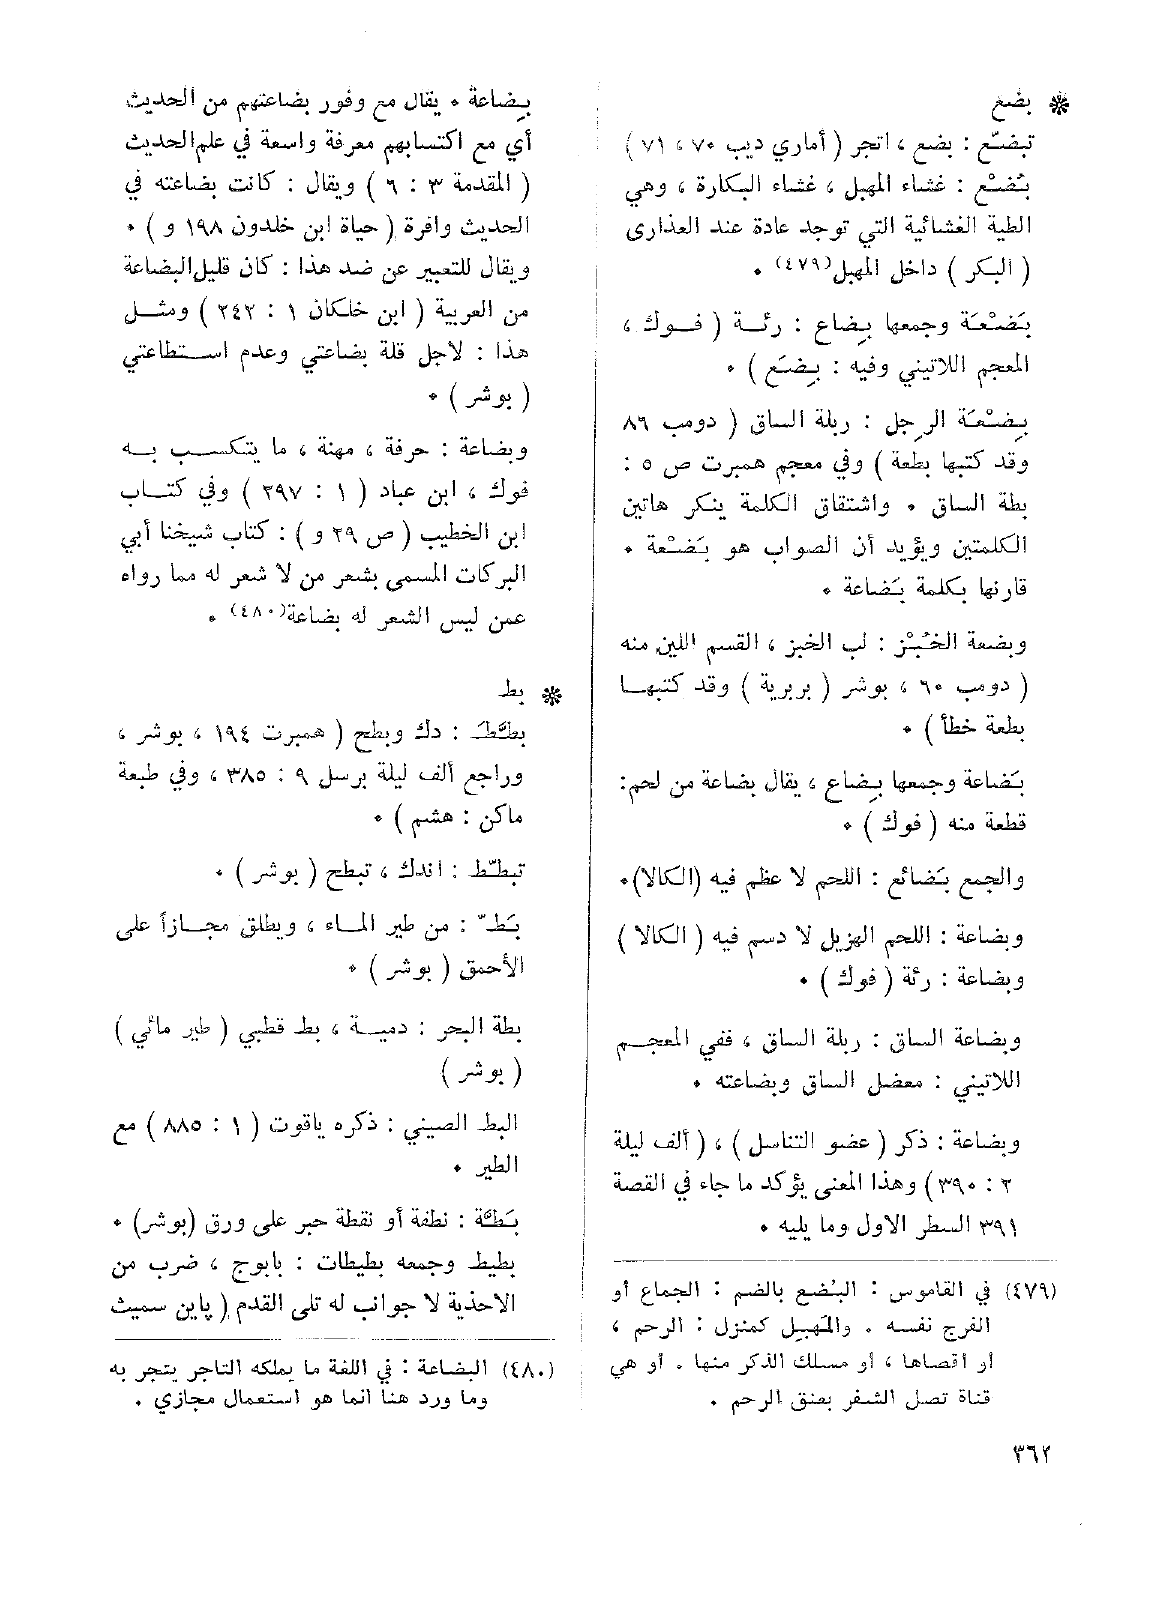 ❊ بضُع
تبضّع : بضع ، اتجر ( أماري ديب ٧٠ ، ٧١ )
بُضْع : غشاء المهبل ، غشاء البكارة ، وهي
الطية الغشائية التي توجد عادة عند العذارى
( البكر ) داخل المهبل(٤٧٩) ٠
بَضْعَة وجمعها بِضاع : رئة ( فوك ،
المعجم اللاتيني وفيه : بِضَع ) ٠
بِضْعَة الرِجل : ربلة الساق ( دومب ٨٦
وقد كتبها بطعة ) وفي معجم همبرت ص ٥ :
بطة الساق ٠ واشتقاق الكلمة ينكر هاتين
الكلمتين ويؤيد أن الصواب هو بَضْعة ٠
قارنها بكلمة بَضاعة ٠
وبضعة الخُبْز : لب الخبز ، القسم اللين منه
( دومب ٦٠ ، بوشر ( بربرية ) وقد كتبها
بطعة خطأ ) ٠
بَضاعة وجمعها بِضاع ، يقال بضاعة من لحم :
قطعة منه ( فوك ) ٠
والجمع بَضائع : اللحم لا عظم فيه (الكالا)٠
وبضاعة : اللحم الهزيل لا دسم فيه ( الكالا )
وبضاعة : رئة ( فوك ) ٠
وبضاعة الساق : ربلة الساق ، ففي المعجم
اللاتيني : معضل الساق وبضاعته ٠
وبضاعة : ذكر ( عضو التناسل ) ، ( ألف ليلة
٢ : ٣٩٠ ) وهذا المعنى يؤكد ما جاء في القصة
٣٩١ السطر الاول وما يليه ٠
(٤٧٩) في القاموس : البُضع بالضم : الجماع أو
الفرج نفسه . والمَهبِل كمنزل : الرحم ،
أو اقصاها ، أو مسلك الذكر منها . أو هي
قناة تصل الشفر بعنق الرحم .
بِضاعة ٠ يقال مع وفور بضاعتهم من الحديث
أي مع اكتسابهم معرفة واسعة في علم الحديث
( المقدمة ٣ : ٦ ) ويقال : كانت بضاعته في
الحديث وافرة ( حياة ابن خلدون ١٩٨ و ) ٠
ويقال للتعبير عن ضد هذا : كان قليل البضاعة
من العربية ( ابن خلكان ١ : ٢٤٢ ) ومثل
هذا : لاجل قلة بضاعتي وعدم استطاعتي
( بوشر ) ٠
وبضاعة : حرفة ، مهنة ، ما يتكسب به
فوك ، ابن عباد ( ١ : ٢٩٧ ) وفي كتاب
ابن الخطيب ( ص ٢٩ و ) : كتاب شيخنا أبي
البركات المسمى بشعر من لا شعر له مما رواه
عمن ليس الشعر له بضاعة(٤٨٠) ٠
❊ بط
بطَّطَ : دك وبطح ( همبرت ١٩٤ ، بوشر ،
وراجع ألف ليلة برسل ٩ : ٣٨٥ ، وفي طبعة
ماكن : هشم ) ٠
تبطّط : اندك ، تبطح ( بوشر ) ٠
بَطّ : من طير الماء ، ويطلق مجازاً على
الأحمق ( بوشر ) ٠
بطة البحر : دمية ، بط قطبي ( طير مائي )
( بوشر )
البط الصيني : ذكره ياقوت ( ١ : ٨٨٥ ) مع
الطير ٠
بَطَّة : نطفة أو نقطة حبر على ورق (بوشر) ٠
بطيط وجمعه بطيطات : بابوج ، ضرب من
الاحذية لا جوانب له تلى القدم ( پاين سميث
(٤٨٠) البضاعة : في اللغة ما يملكه التاجر يتجر به
وما ورد هنا انما هو استعمال مجازي .
٣٦٢